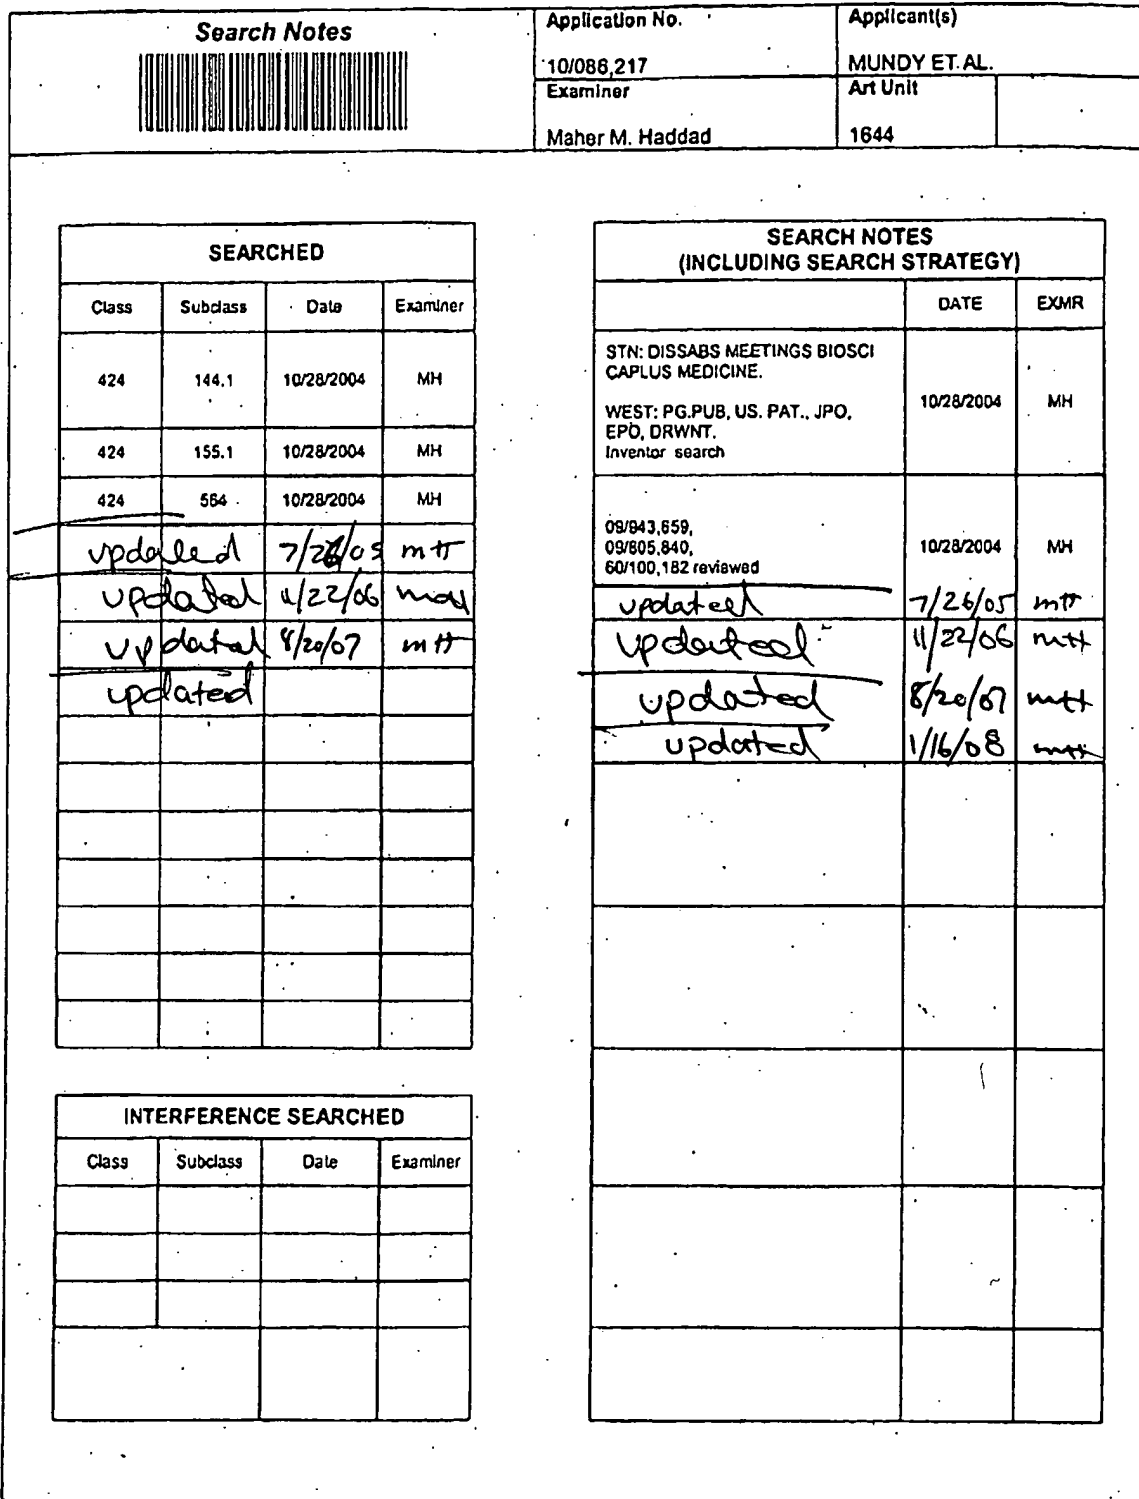 Search Notes
Application No.
10/086,217
Applicant(s)
MUNDY ET. AL.
Examiner
Maher M. Haddad
Art Unit
1644
SEARCHED
Class Subclass Date Examiner
424 144.1 10/28/2004 MH
424 155.1 10/28/2004 MH
424 564 10/28/2004 MH
updated 7/26/05 MH
updated 11/22/06 MH
updated 8/20/07 MH
updated
SEARCH NOTES
(INCLUDING SEARCH STRATEGY)
DATE EXMR
STN: DISSABS MEETINGS BIOSCI
CAPLUS MEDICINE.
WEST: PG.PUB, US. PAT., JPO,
EPO, DRWNT.
Inventor search
10/28/2004 MH
09/943,659,
09/805,840,
60/100,182 reviewed
10/28/2004 MH
updated 7/26/05 MH
updated 11/22/06 MH
updated 8/20/07 MH
updated 1/16/08 MH
INTERFERENCE SEARCHED
Class Subclass Date Examiner